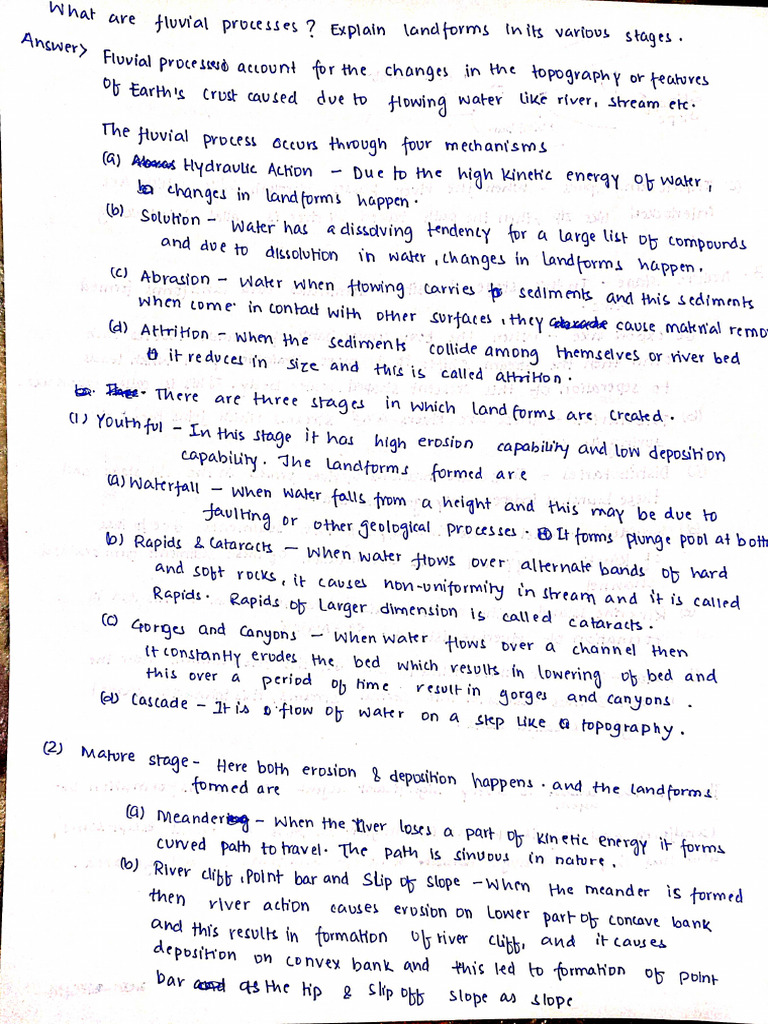 What are fluvial processes? Explain landforms in its various stages.
Answer> Fluvial processes account for the changes in the topography or features
of Earth's crust caused due to flowing water like river, stream etc.
The fluvial process occurs through four mechanisms
(a) Hydraulic Action - Due to the high kinetic energy of water,
changes in landforms happen.
(b) Solution - Water has a dissolving tendency for a large list of compounds
and due to dissolution in water, changes in landforms happen.
(c) Abrasion - Water when flowing carries sediments and this sediments
when come in contact with other surfaces, they cause material remo
(d) Attrition - When the sediments collide among themselves or river bed
it reduces in size and this is called attrition.
There are three stages in which landforms are created.
(1) Youthful - In this stage it has high erosion capability and low deposition
capability. The landforms formed are
(a) Waterfall - When water falls from a height and this may be due to
faulting or other geological processes. It forms plunge pool at both
(b) Rapids & Cataracts - When water flows over alternate bands of hard
and soft rocks, it causes non-uniformity in stream and it is called
Rapids. Rapids of Larger dimension is called cataracts.
(c) Gorges and Canyons - When water flows over a channel then
it constantly erudes the bed which results in lowering of bed and
this over a period of time result in gorges and canyons.
(d) Cascade - It is flow of water on a step like topography.
(2) Mature stage - Here both erosion & deposition happens. and the landforms
formed are
(a) Meander - When the river loses a part of kinetic energy it forms
curved path to travel. The path is sinuous in nature.
(b) River cliff, Point bar and Slip of slope - When the meander is formed
then river action causes erosion on lower part of concave bank
and this results in formation of river cliff, and it causes
deposition on convex bank and this led to formation of point
bar as the tip & slip off slope as slope